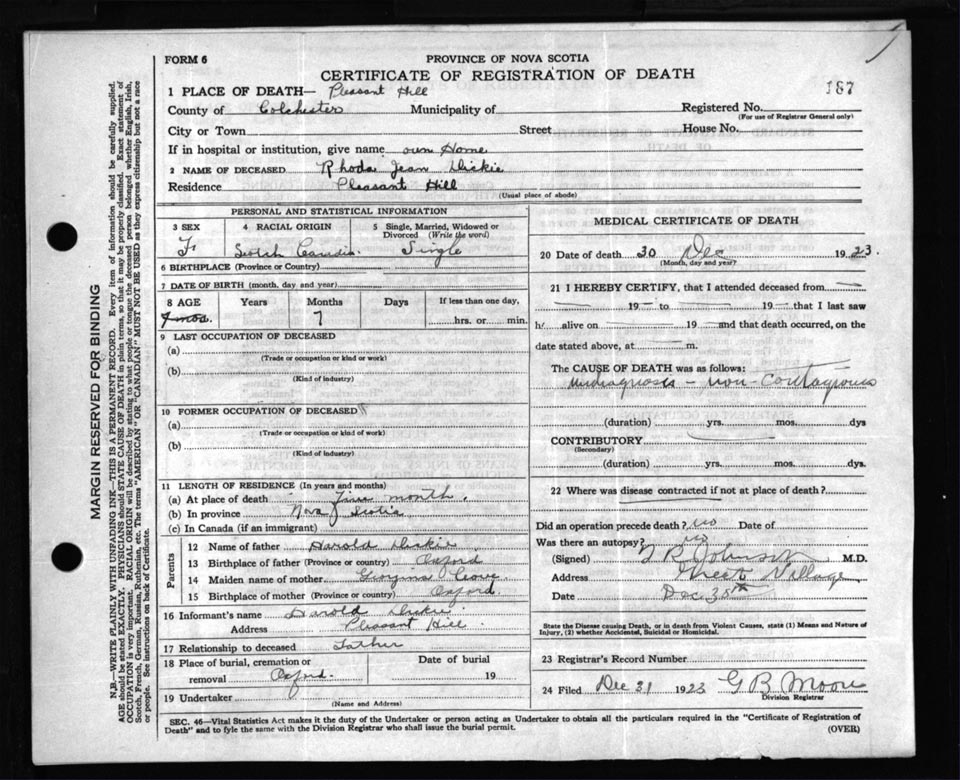 FORM 6
PROVINCE OF NOVA SCOTIA
CERTIFICATE OF REGISTRATION OF DEATH
187
1 PLACE OF DEATH— Pleasant Hill
County of Colchester Municipality of Registered No.
(For use of Registrar General only)
City or Town Street House No.
If in hospital or institution, give name own Home
2 NAME OF DECEASED Rhoda Jean Dickie
Residence Pleasant Hill
(Usual place of abode)
PERSONAL AND STATISTICAL INFORMATION
3 SEX 4 RACIAL ORIGIN 5 Single, Married, Widowed or Divorced (Write the word)
F. Scotch Single
6 BIRTHPLACE (Province or Country)
7 DATE OF BIRTH (month, day and year)
8 AGE Years Months Days If less than one day,
7 mos. 7 hrs. or min.
9 LAST OCCUPATION OF DECEASED
(a)
(Trade or occupation or kind or work)
(b)
(Kind of industry)
10 FORMER OCCUPATION OF DECEASED
(a)
(Trade or occupation or kind of work)
(b)
(Kind of industry)
11 LENGTH OF RESIDENCE (In years and months)
(a) At place of death month.
(b) In province Nova Scotia
(c) In Canada (if an immigrant)
Parents
12 Name of father Harold Dickie
13 Birthplace of father (Province or country) Oxford
14 Maiden name of mother
15 Birthplace of mother (Province or country) Oxford.
16 Informant's name Harold Dickie
Address Pleasant Hill
17 Relationship to deceased Father
18 Place of burial, cremation or removal Oxford. Date of burial 19
19 Undertaker
(Name and Address)
MEDICAL CERTIFICATE OF DEATH
20 Date of death 30 Dec 1923.
(Month, day and year)
21 I HEREBY CERTIFY, that I attended deceased from
19 to 19 that I last saw
h alive on 19 and that death occurred, on the
date stated above, at m.
The CAUSE OF DEATH was as follows:
non-contagious
(duration) yrs. mos. dys
CONTRIBUTORY
(Secondary)
(duration) yrs. mos. dys.
22 Where was disease contracted if not at place of death?
Did an operation precede death? no Date of
Was there an autopsy? no
(Signed) Johnson M.D.
Address Village
Date Dec 30th
State the Disease causing Death, or in death from Violent Causes, state (1) Means and Nature of
Injury, (2) whether Accidental, Suicidal or Homicidal.
23 Registrar's Record Number
24 Filed Dec 31 1923 G B Moore
Division Registrar
SEC. 46—Vital Statistics Act makes it the duty of the Undertaker or person acting as Undertaker to obtain all the particulars required in the "Certificate of Registration of
Death" and to fyle the same with the Division Registrar who shall issue the burial permit.
(OVER)
MARGIN RESERVED FOR BINDING
N.B.—WRITE PLAINLY WITH UNFADING INK—THIS IS A PERMANENT RECORD. Every item of information should be carefully supplied.
AGE should be stated EXACTLY. PHYSICIANS should STATE CAUSE OF DEATH in plain terms, so that it may be properly classified. Exact statement of
OCCUPATION is very important. RACIAL ORIGIN will be described by stating to what people or tongue the deceased person belonged whether English, Irish,
Scotch, French, German, Russian, Ruthenian, etc. The terms "AMERICAN" OR "CANADIAN" MUST NOT BE USED as they express citizenship but not a race
or people. See instructions on back of Certificate.